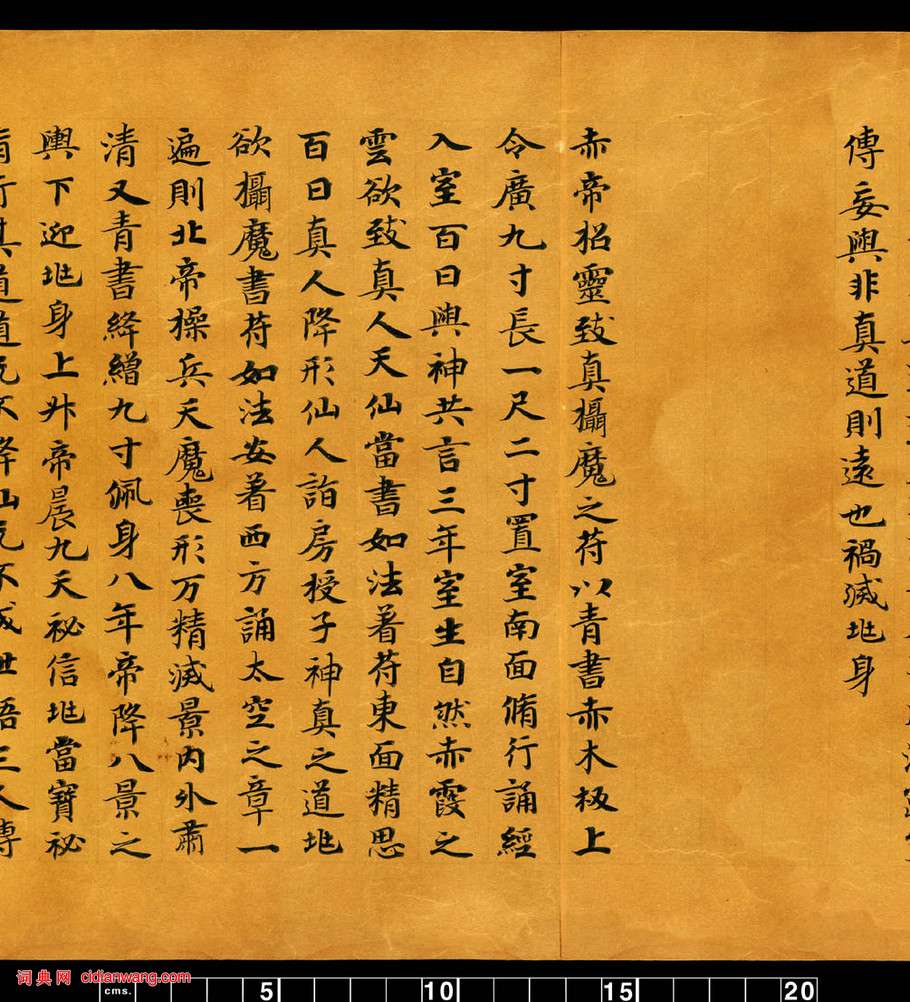 傳妄與非真道則遠也禍滅地身
赤帝招靈致真攝魔之符以青書赤木板上
令廣九寸長一尺二寸置室南面脩行誦經
入室百日與神共言三年室生自然赤霞之
雲欲致真人天仙當書如法着符東面精思
百日真人降形仙人詣房授子神真之道地
欲攝魔書符如法安着西方誦太空之章一
遍則北帝操兵天魔喪形万精滅景内外肅
清又青書絳繒九寸佩身八年帝降八景之
輿下迎地身上升帝晨九天祕信地當寶祕
cms. 5 10 15 20
词典网 cidianwang.com